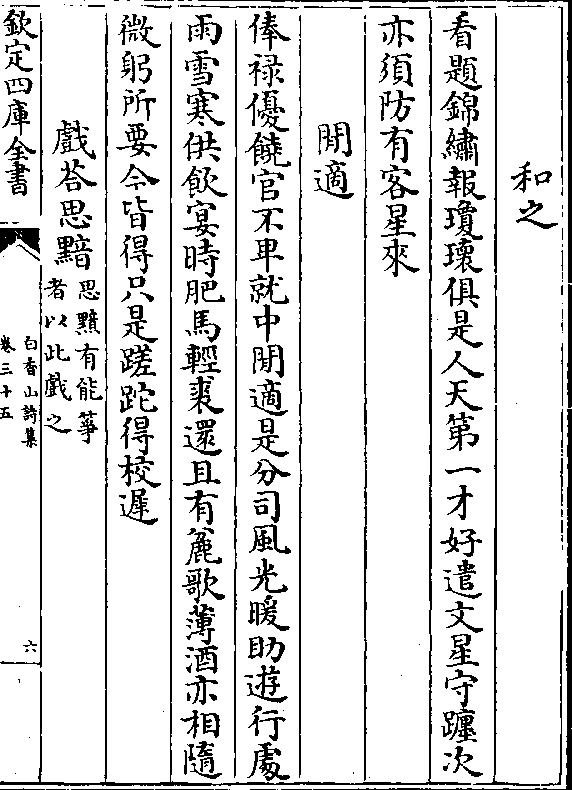 和之
看題錦繡報瓊瓌俱是人天第一才好遣文星守躔次
亦須防有客星來
閒適
俸祿優饒官不卑就中閒適是分司風光暖助遊行處
雨雪寒供飲宴時肥馬輕裘還且有麄歌薄酒亦相隨
微躬所要今皆得只是蹉跎得校遲
戲答思黯思黯有能箏
者以此戲之
欽定四庫全書
白香山詩集
卷三十五
六